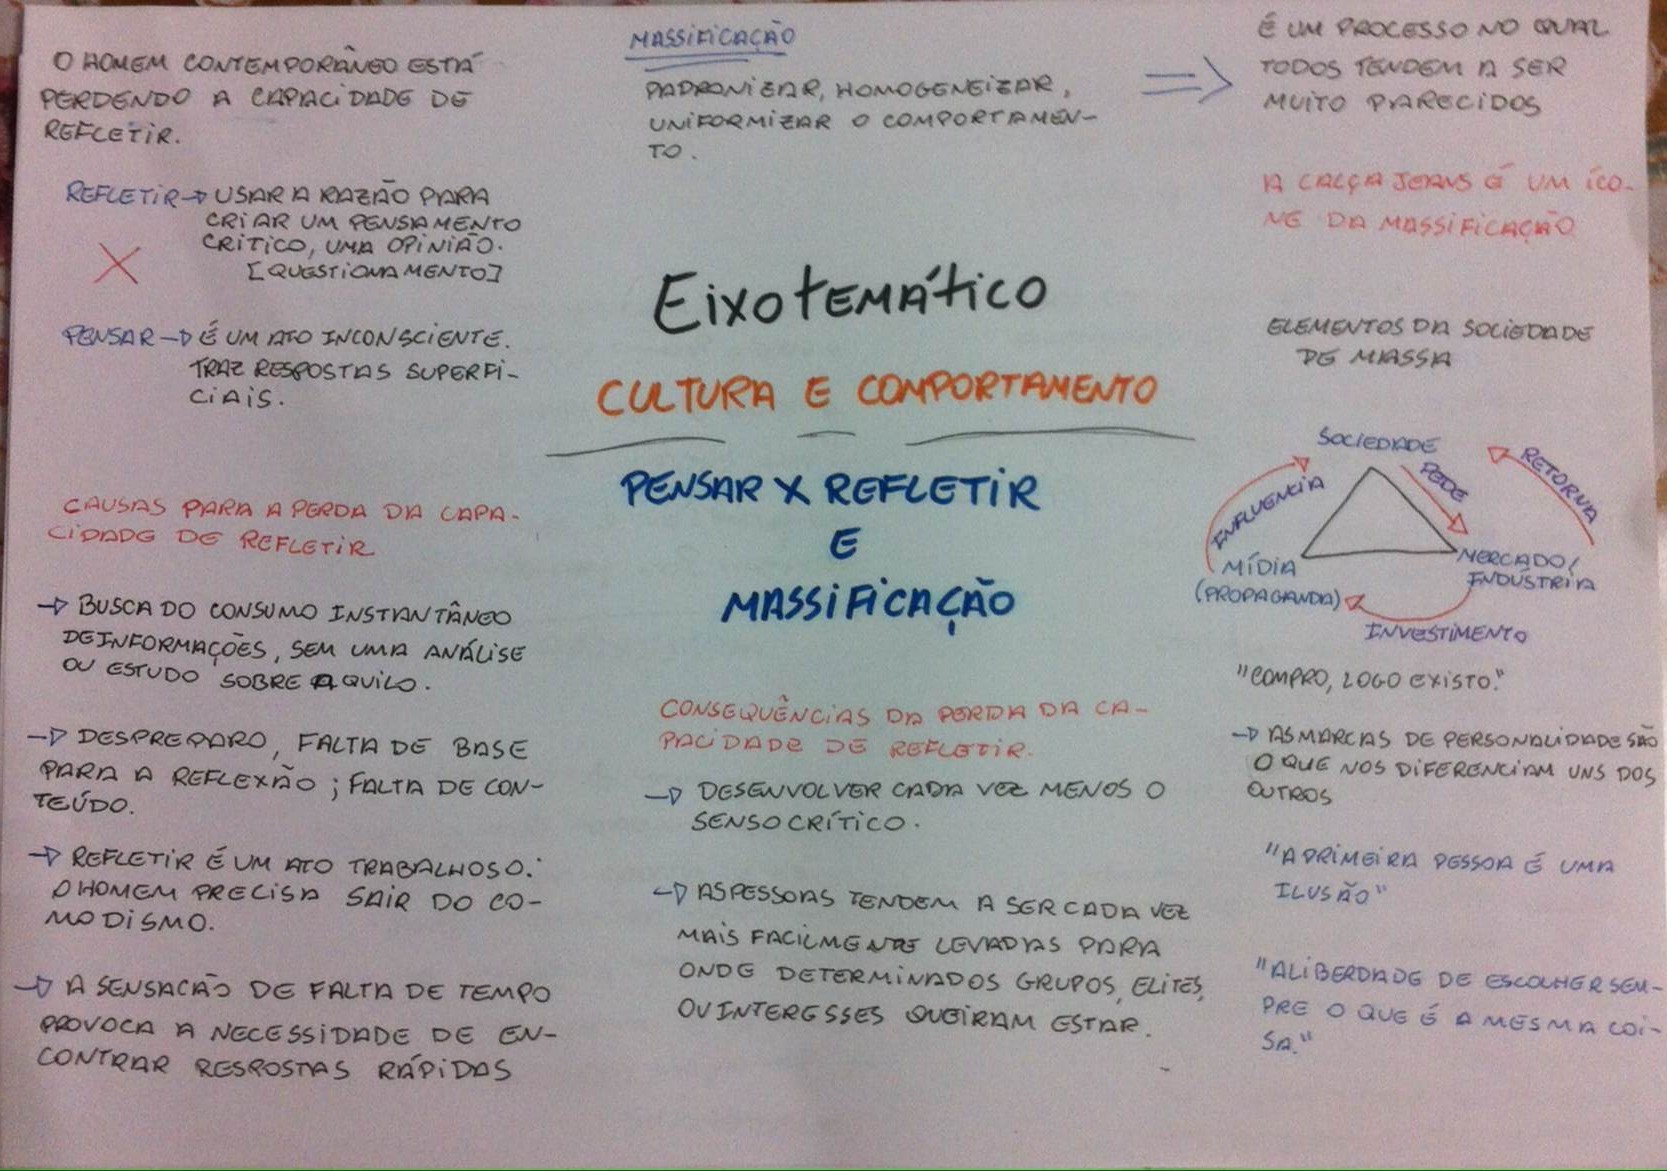 O HOMEM CONTEMPORÂNEO ESTÁ
PERDENDO A CAPACIDADE DE
REFLETIR.
REFLETIR → USAR A RAZÃO PARA
CRIAR UM PENSAMENTO
CRÍTICO, UMA OPINIÃO.
[QUESTIONAMENTO]
X
PENSAR → É UM ATO INCONSCIENTE.
TRAZ RESPOSTAS SUPERFI-
CIAIS.
CAUSAS PARA A PERDA DA CAPA-
CIDADE DE REFLETIR
→ BUSCA DO CONSUMO INSTANTÂNEO
DE INFORMAÇÕES, SEM UMA ANÁLISE
OU ESTUDO SOBRE AQUILO.
→ DESPREPARO, FALTA DE BASE
PARA A REFLEXÃO; FALTA DE CON-
TEÚDO.
→ REFLETIR É UM ATO TRABALHOSO:
O HOMEM PRECISA SAIR DO CO-
MODISMO.
→ A SENSACÃO DE FALTA DE TEMPO
PROVOCA A NECESSIDADE DE EN-
CONTRAR RESPOSTAS RÁPIDAS
MASSIFICAÇÃO
PADRONIZAR, HOMOGENEIZAR,
UNIFORMIZAR O COMPORTAMEN-
TO.
⇒
Eixo temático
CULTURA E COMPORTAMENTO
PENSAR X REFLETIR
E
MASSIFICAÇÃO
CONSEQUÊNCIAS DA PERDA DA CA-
PACIDADE DE REFLETIR.
→ DESENVOLVER CADA VEZ MENOS O
SENSO CRÍTICO.
→ AS PESSOAS TENDEM A SER CADA VEZ
MAIS FACILMENTE LEVADAS PARA
ONDE DETERMINADOS GRUPOS, ELITES,
OU INTERESSES QUEIRAM ESTAR.
É UM PROCESSO NO QUAL
TODOS TENDEM A SER
MUITO PARECIDOS
A CALÇA JEANS É UM ÍCO-
NE DA MASSIFICAÇÃO
ELEMENTOS DA SOCIEDADE
DE MASSA
SOCIEDADE
INFLUENCIA
PEDE
RETORNA
MÍDIA
(PROPAGANDA)
MERCADO/
INDÚSTRIA
INVESTIMENTO
"COMPRO, LOGO EXISTO."
→ AS MARCAS DE PERSONALIDADE SÃO
O QUE NOS DIFERENCIAM UNS DOS
OUTROS
"A PRIMEIRA PESSOA É UMA
ILUSÃO"
"A LIBERDADE DE ESCOLHER SEM-
PRE O QUE É A MESMA COI-
SA."